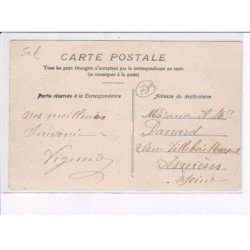 506
CARTE POSTALE
Tous les pays étrangers n'acceptent pas la correspondance au recto
(se renseigner à la poste)
Partie réservée à la Correspondance
Adresse du destinataire
78
nos meilleurs
Souvenirs
Madame & Mr
Asnières
Seine